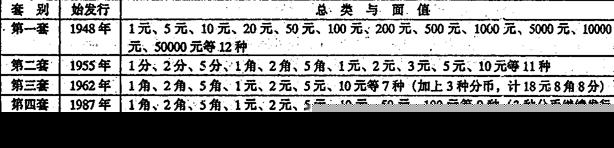 套 别 始发行 总 类 与 面 值
第一套 1948年 1元、5元、10元、20元、50元、100元、200元、500元、1000元、5000元、10000
元、50000元等12种
第二套 1955年 1分、2分、5分、1角、2角、5角、1元、2元、3元、5元、10元等11种
第三套 1962年 1角、2角、5角、1元、2元、5元、10元等7种（加上3种分币，计18元8角8分）
第四套 1987年 1角、2角、5角、1元、2元、5元、10元、50元、100元等9种